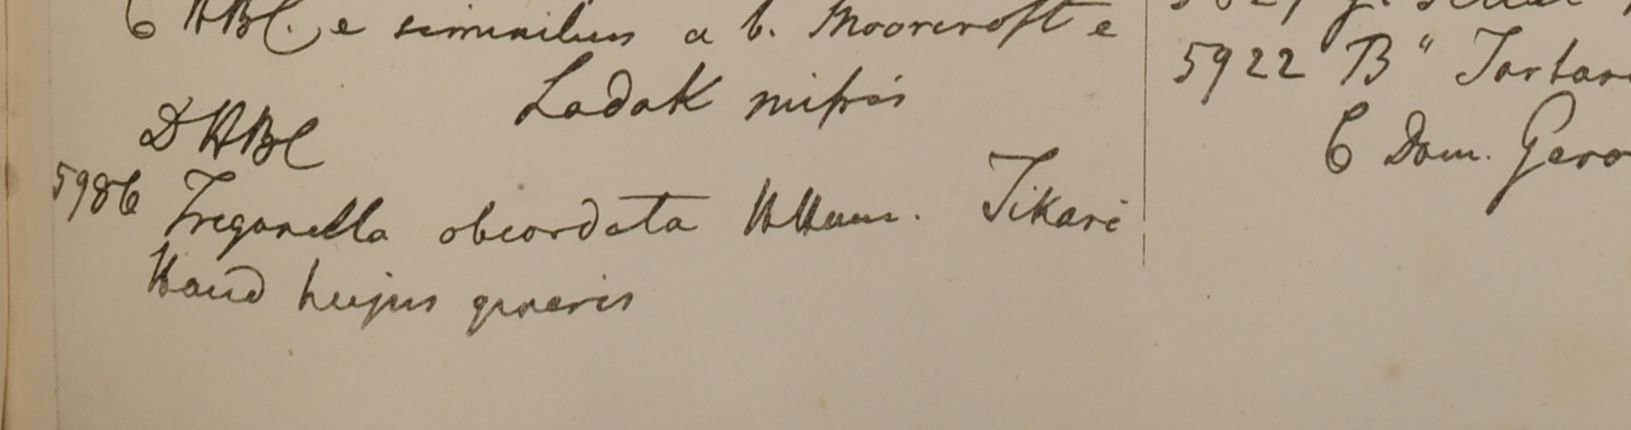 C HBC. e seminibus a b. Moorcroft e
Ladak missis
D HBC
5986 Trigonella obcordata HHam. Tikari
Haud hujus generis
5922 B "
C Dom.